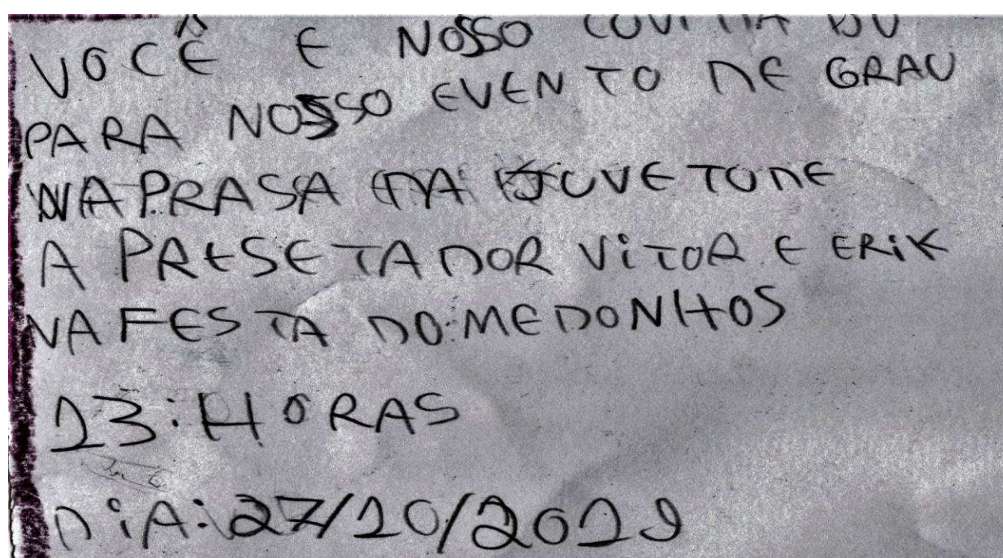 VOCÊ E NOSSO CONVIDADO
PARA NOSSO EVENTO DE GRAU
NA PRASA DA JUVETUDE
A PRESETADOR VITOR E ERIK
NA FESTA DO MEDONHOS
13:HORAS
DIA:27/10/2019